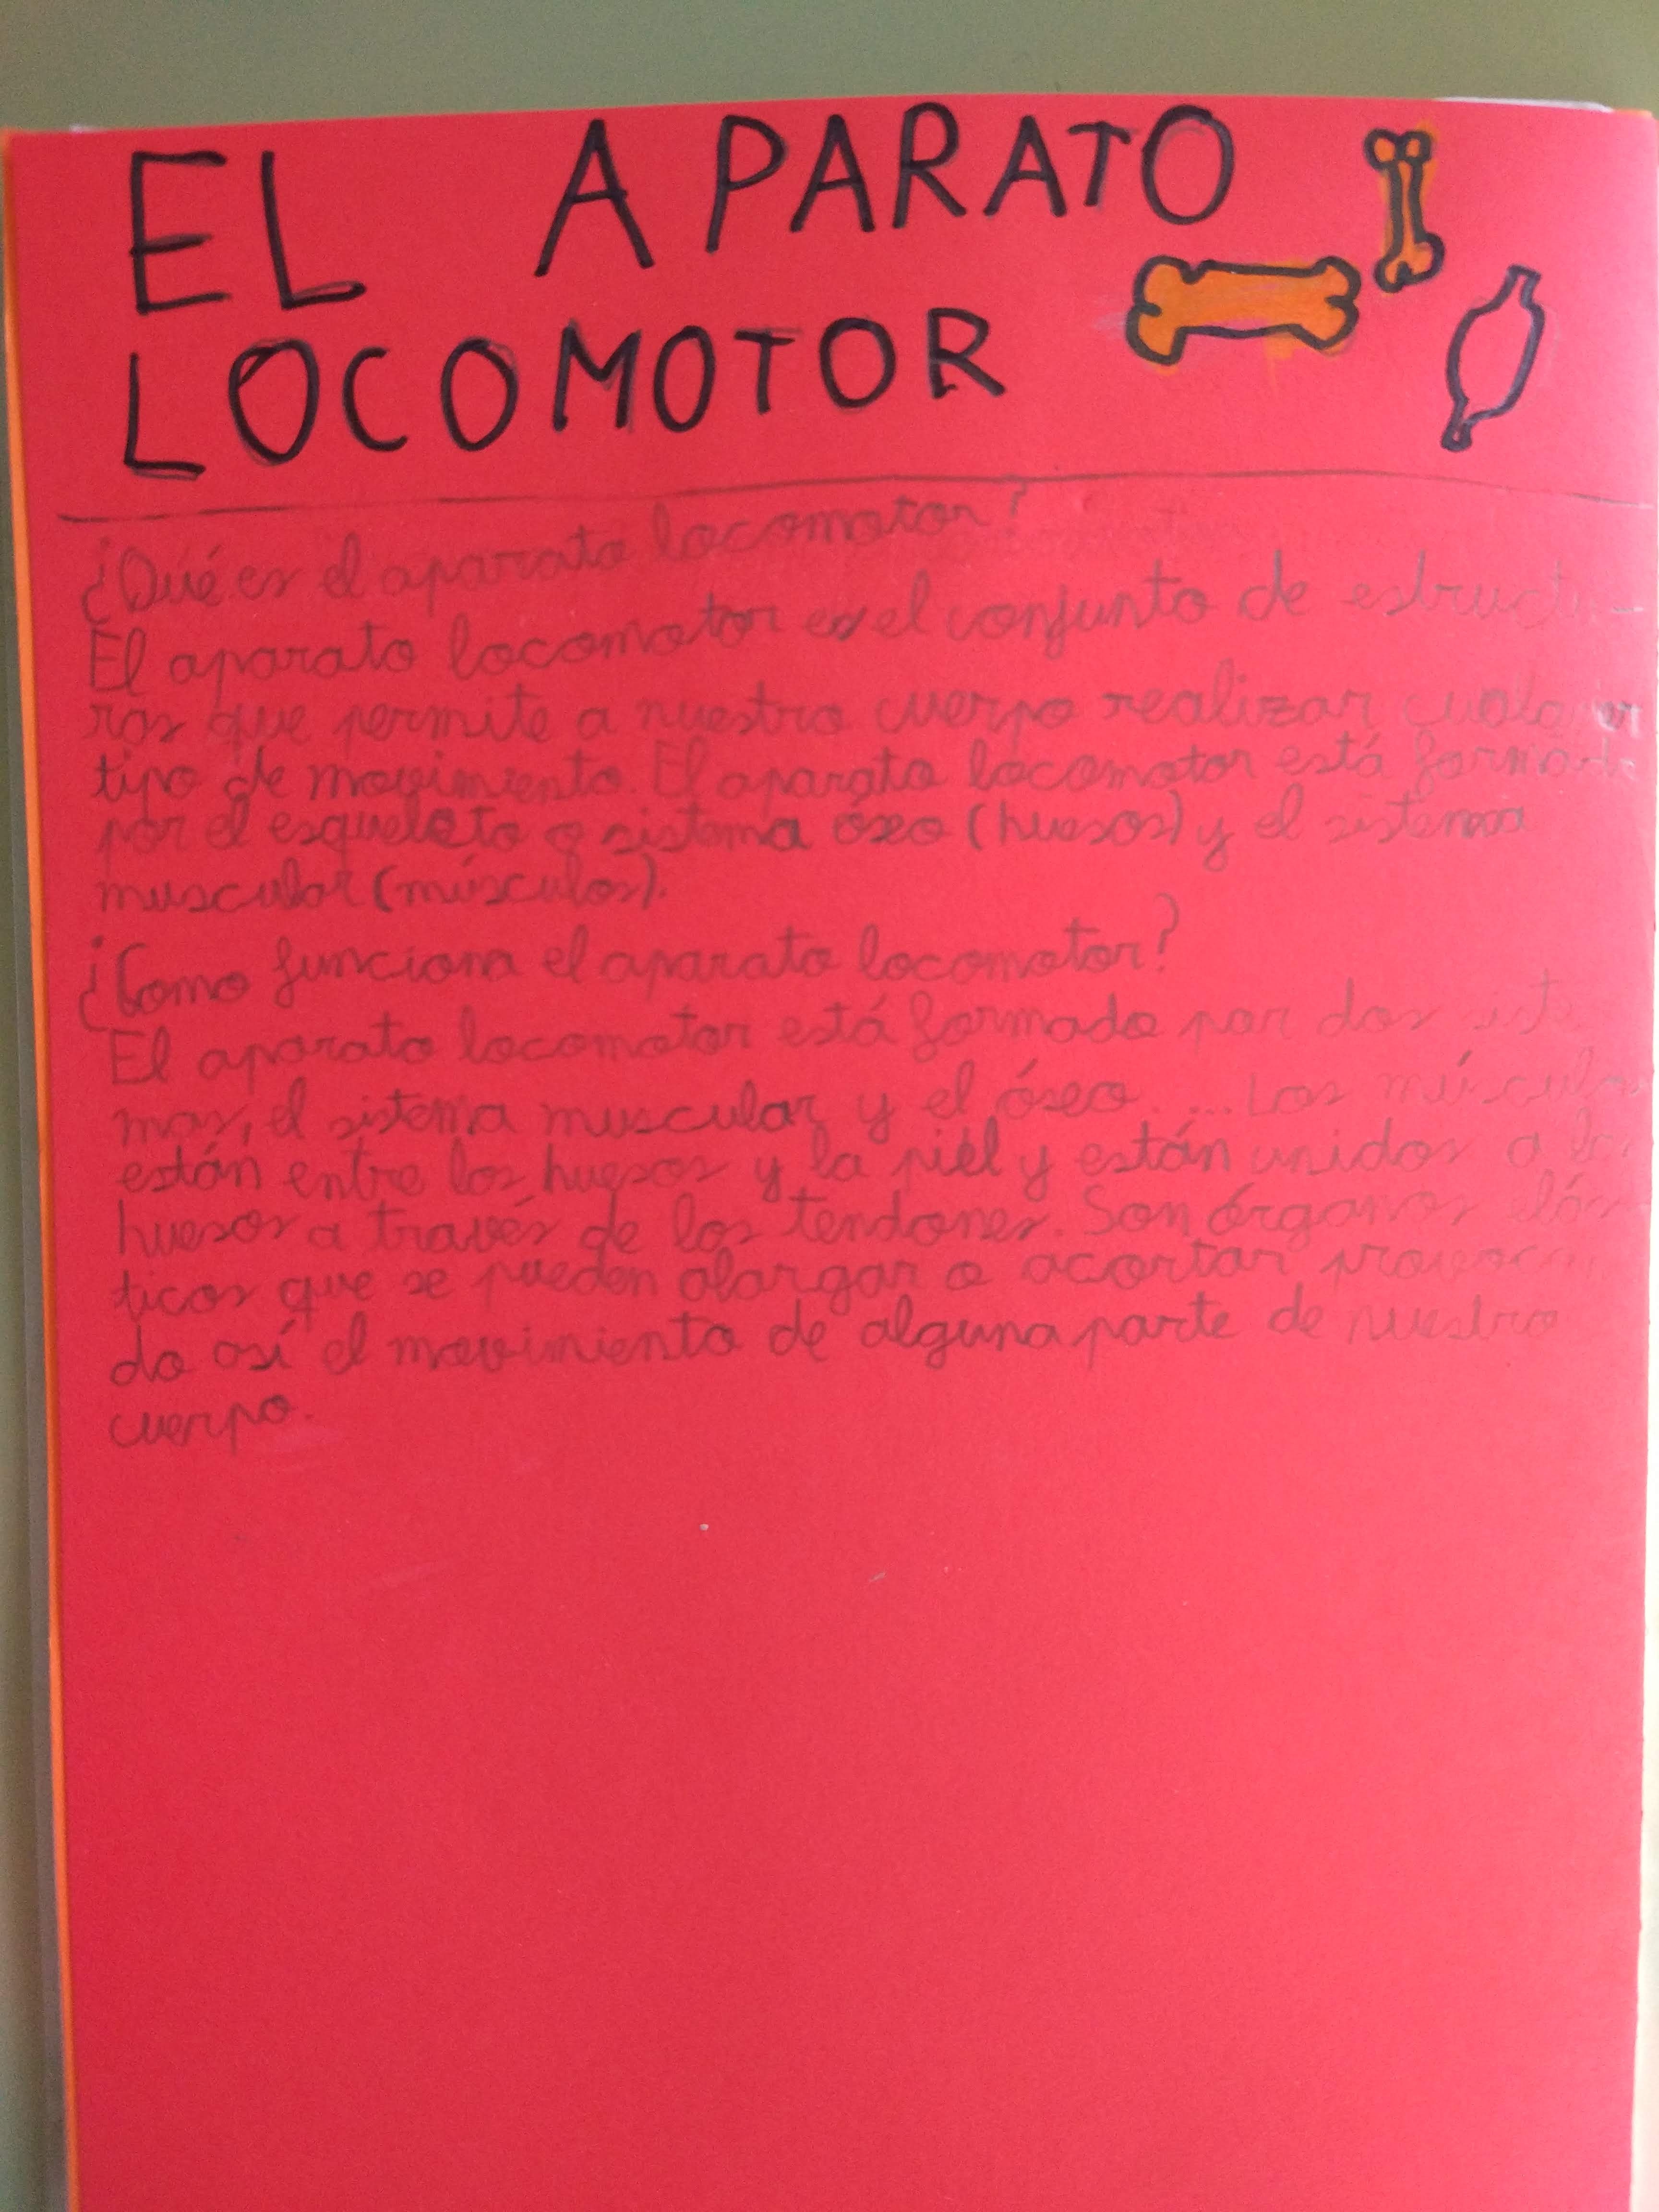 EL APARATO
LOCOMOTOR
¿Qué es el aparato locomotor?
El aparato locomotor es el conjunto de estructu-
ras que permite a nuestro cuerpo realizar
tipo de movimiento. El aparato locomotor está formado
por el esqueleto o sistema óseo (huesos) y el sistema
muscular (músculos).
¿Como funciona el aparato locomotor?
El aparato locomotor está formado por dos siste
mas, el sistema muscular y el óseo. ... Los músculos
están entre los huesos y la piel y están unidos a los
huesos a través de los tendones. Son órganos elás
ticos que se pueden alargar o acortar
do así el movimiento de alguna parte de nuestro
cuerpo.